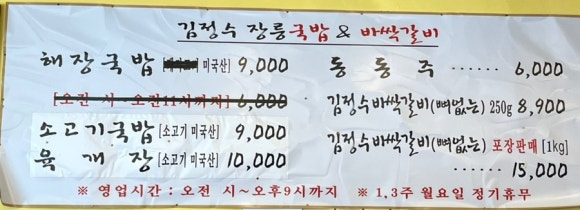 김정수 장릉국밥 & 바싹갈비
해장국밥 [미국산] 9,000
[오전 시~오전11시까지] 6,000
소고기국밥 [소고기 미국산] 9,000
육개장 [소고기 미국산] 10,000
동동주 ...... 6,000
김정수바싹갈비(뼈없는) 250g 8,900
김정수바싹갈비(뼈없는) 포장판매 [1kg]
...... 15,000
※ 영업시간 : 오전 시~오후9시까지 ※ 1,3주 월요일 정기휴무